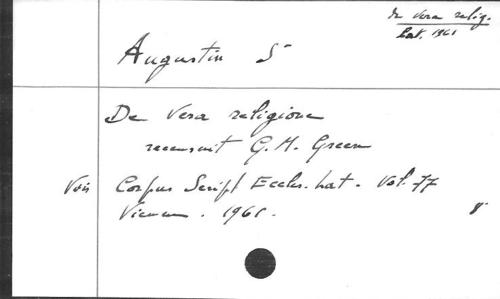 De vera relig.
Lat. 1961
Augustin St
De vera religione
recensuit G. M. Green
Voir Corpus Script Eccles. Lat. Vol. 77
Vienne. 1961.